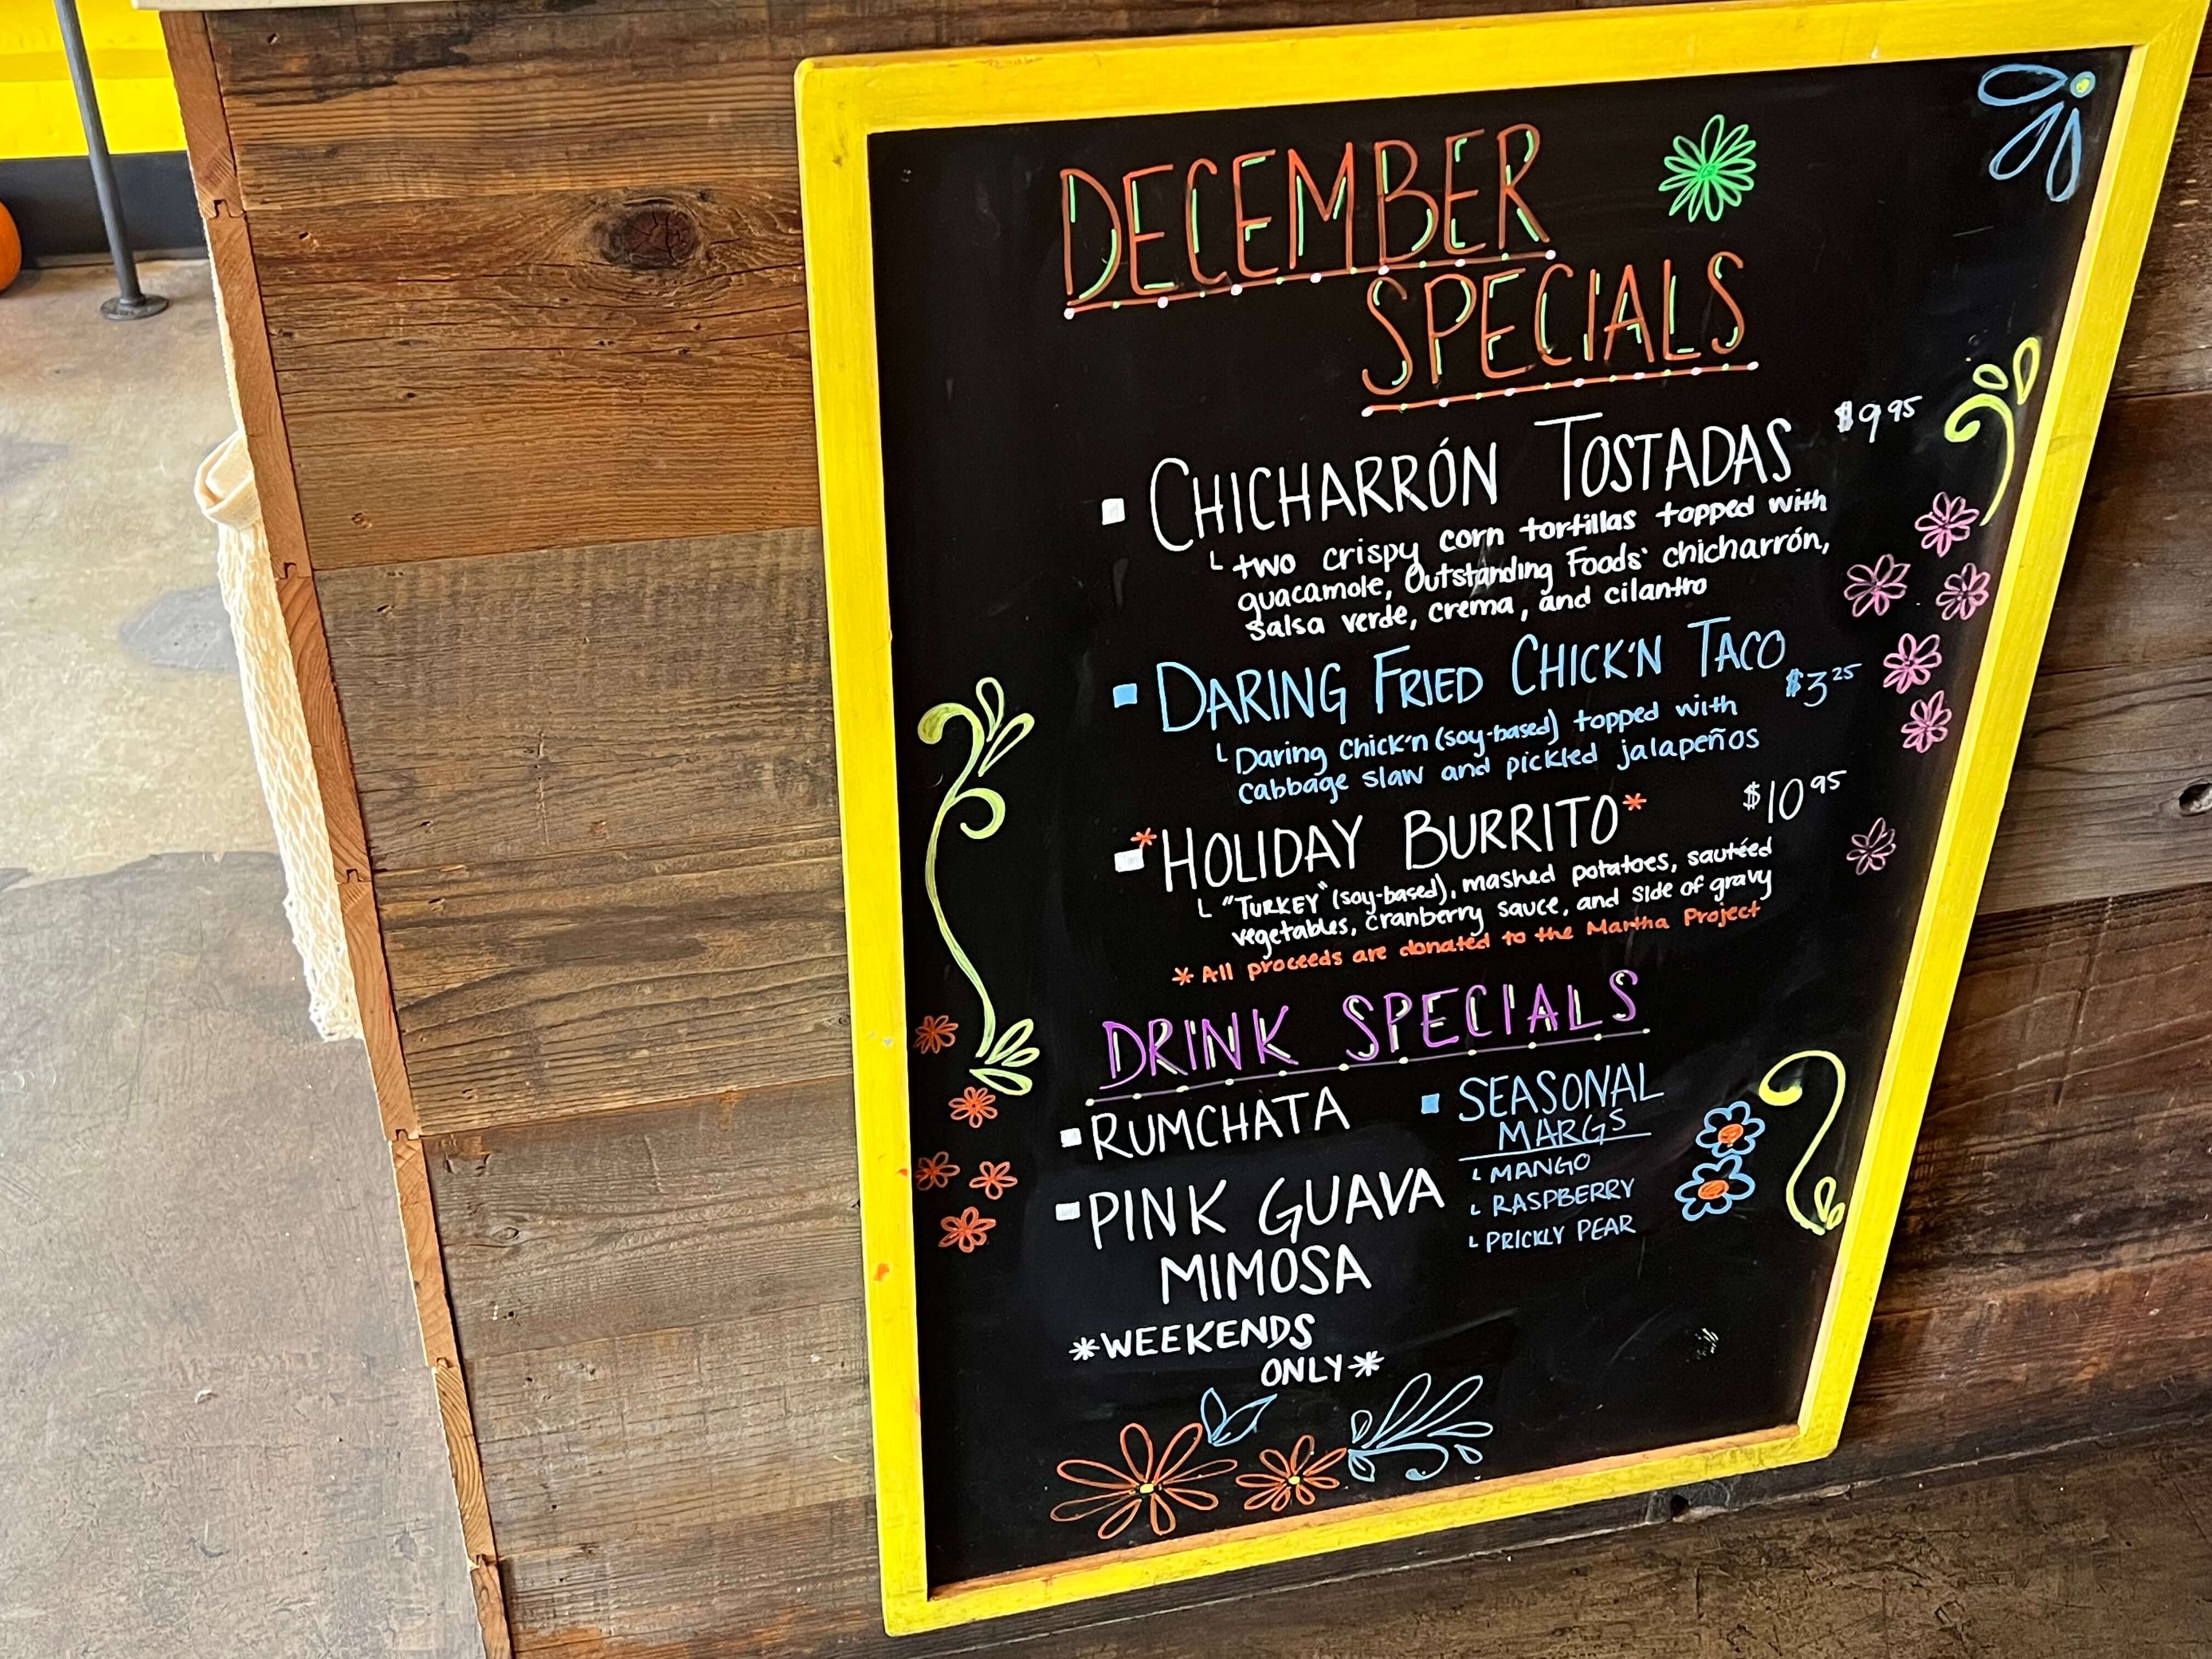 DECEMBER
SPECIALS
CHICHARRÓN TOSTADAS $9.95
two crispy corn tortillas topped with
guacamole, Outstanding Foods' chicharrón,
salsa verde, crema, and cilantro
DARING FRIED CHICK'N TACO
$3.25
Daring Chick'n (soy-based) topped with
cabbage slaw and pickled jalapeños
*HOLIDAY BURRITO* $10.95
"TURKEY" (soy-based), mashed potatoes, sautéed
vegetables, cranberry sauce, and side of gravy
* All proceeds are donated to the Martha Project
DRINK SPECIALS
RUMCHATA
PINK GUAVA
MIMOSA
*WEEKENDS
ONLY*
SEASONAL
MARGS
MANGO
RASPBERRY
PRICKLY PEAR